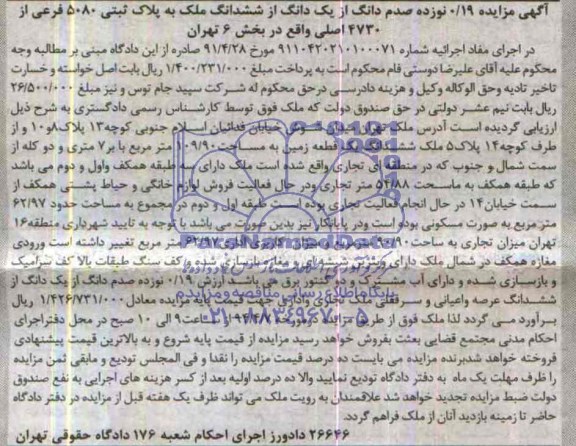 آگهی مزایده ۰/۱۹ نوزده صدم دانگ از یک دانگ از ششدانگ ملک به پلاک ثبتی ۵۰۸۰ فرعی از
۴۷۳۰ اصلی واقع در بخش ۶ تهران
در اجرای مفاد اجرائیه شماره ۹۱۱۰۴۲۰۲۱۰۱۰۰۰۷۱ مورخ ۹۱/۴/۲۸ صادره از این دادگاه مبنی بر مطالبه وجه
محکوم علیه آقای علیرضا دوستی قام محکوم است به پرداخت مبلغ ۱/۴۰۰/۲۳۱/۰۰۰ ریال بابت اصل خواسته و خسارت
تاخیر تادیه وحق الوکاله وکیل و هزینه دادرسی درحق محکوم له شرکت سپید جام توس و نیز مبلغ ۲۶/۵۰۰/۰۰۰
ریال بابت نیم عشر دولتی در حق صندوق دولت که ملک فوق توسط کارشناس رسمی دادگستری به شرح ذیل
ارزیابی گردیده است آدرس ملک تهران میدان شوش خیابان فدائیان اسلام جنوبی کوچه۱۳ پلاک۸و۱۰ و از
طرف کوچه۱۴ پلاک۵ ملک ششدانگ یک قطعه زمین به مساحت ۱۰۹/۹۰ متر مربع با بر۷ متری و دو کله از
سمت شمال و جنوب که در منطقه ای تجاری واقع شده است ملک دارای سه طبقه همکف واول و دوم می باشد
که طبقه همکف به ماسحت ۵۴/۸۸ متر تجاری ودر حال فعالیت فروش لوازم خانگی و حیاط پشتی همکف از
سمت خیابان۱۴ در حال انجام فعالیت تجاری بوده است طبقه اول و دوم در مجموع به مساحت حدود ۶۲/۹۷
متر مربع به صورت مسکونی بوده است ودر پایانکار نیز بدین صورت می باشد با توجه به تایید شهرداری منطقه۱۶
تهران میزان تجاری به ساحت ۹۰/۹۰ متر مربع و میزان کاربری اداری ۶۲/۹۷ متر مربع تغییر داشته است ورودی
مغازه همکف در شمال ملک دارای ویترین شیشه ای و مغازه بازسازی شده و کف سنگ طبقات بالا کف سرامیک
و بازسازی شده و دارای آب مشترک و دو کنتور برق می باشد ارزش ۰/۱۹ نوزده صدم دانگ از یک دانگ از
ششدانگ عرصه واعیانی و سرقفلی ملک تجاری واداری جهت قیمت پایه مزایده معادل ۱/۴۲۶/۷۳۱/۰۰۰ ریال
برآورد می گردد لذا ملک فوق از طریق مزایده درمورخه ساعت۹ الی ۱۰ صبح در محل دفتراجرای
احکام مدنی مجتمع قضایی بعثت بفروش خواهد رسید مزایده از قیمت پایه شروع و به بالاترین قیمت پیشنهادی
فروخته خواهد شدبرنده مزایده می بایست ده درصد قیمت مزایده را نقدا و فی المجلس تودیع و مابقی ثمن مزایده
را ظرف مهلت یک ماه به دفتر دادگاه تودیع نمایید والا ده درصد اولیه بعد از کسر هزینه های اجرایی به نفع صندوق
دولت ضبط مزایده تجدید خواهد شد علاقمندان به رویت ملک می تواند ظرف یک هفته قبل از مزایده در دفتر دادگاه
حاضر تا زمینه بازدید آنان از ملک فراهم گردد.
۲۶۶۴۶ دادورز اجرای احکام شعبه ۱۷۶ دادگاه حقوقی تهران
پایگاه اطلاع رسانی مناقصه و مزایده
۰۲۱-۸۸۳۴۹۶۷۰-۵